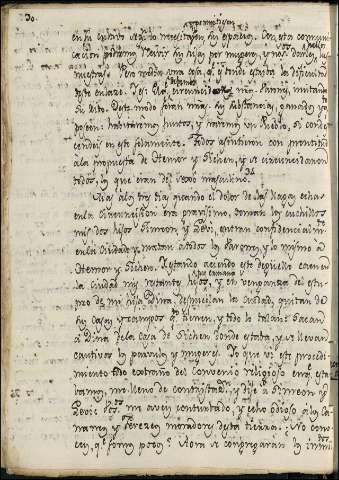 30.
permitieron
en su entrar
cación podemos llevar sus hijas por mugeres, y nos. darles las
nuestras. Pero resta una cosa, q. es donde estaba la dificultad
de este enlaze. Y es: q. circuncidemos nros. Varones, imitando
su rito. De este modo seran nras. sus substancias, ganados, y
poseen: habitaremos juntos, y haremos un Pueblo, si conde
cendeis en esto solamente. Todos asintieron con prontitud
a la propuesta de Hemor y Sichem, y se circuncidaron
todos, los que eran del sexo masculino.
Mas al ter. dia quando el dolor de las llagas echas
en la circuncision era gravisimo, toman los cuchillos
mis dos hijos Simeon, y Levi, entran confidencialmte.
en la Ciudad, y matan a todos los Varones, y lo mismo a
Hemor y Sichem. Y estando aciendo este deguello caen en
la Ciudad mis restantes hijos, y en venganza del estu-
pro de mi hija Dina, desmuelan la Ciudad, quitan de
sus Casas, y campos q.to tienen, y todo lo talan: Sacan
a Dina de la Casa de Sichem donde estaba, y se llevan
cautivos los parvulos y mugeres. Yo que vi este procedi-
miento tan contrario del Convenio religioso en q. esta-
vamos, me lleno de contristad., y dije a Simeon y
Levi: Vos. me aveis conturbado, y echo odioso a los Ca-
naneos, y Ferezeos, moradores de esta tierra: No cono-
ceis, q. somos pocos? Aora se congregarán los